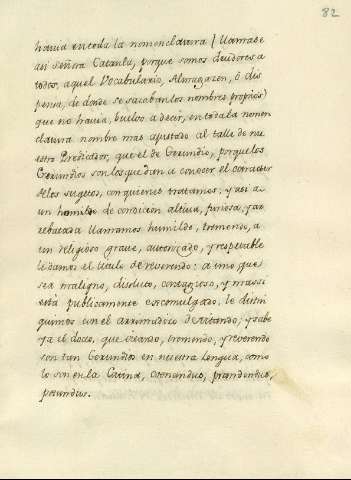 82
havia en toda la nomenclatura (llamase
asi Señora Catanla, porque somos deudores a
todos, aquel Vocabulario, Almagazen, ô dis
pensa, de donde se sacaban los nombres proprios)
que no havia, buelvo a decir, en toda la nomen
clatura nombre mas ajustado al talle de nu
estro Predicador, que el de Gerundio, porque los
Gerundios son los que dan a conocer el caracter
de los sugetos, con quienes tratamos; y asi a
un hombre de condicion altiva, furiosa, y ar
rebatada llamamos humildo, tremendo, a
un Religioso grave, autorizado, y respetable
le damos el titulo de reverendo: a uno que
sea maligno, disoluto, contagioso, y mas si
está publicamente excomulgado, le distin
guimos con el de Vitando; y sabe
ya el docto, que vitando, tremendo, y reverendo
son tan Gerundios en nuestra lengua, como
lo son en la Latina, Coenandus, prandendus,
petendus.